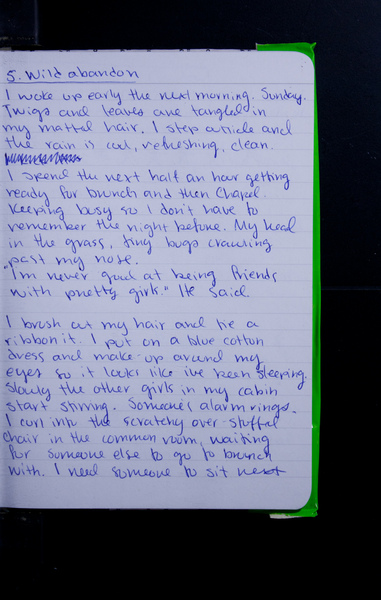 5. Wild abandon
I woke up early the next morning. Sunday.
Twigs and leaves are tangled in
my matted hair. I step outside and
the rain is cool, refreshing, clean.
I spend the next half an hour getting
ready for brunch and then Chapel.
Keeping busy so I don't have to
remember the night before. My head
in the grass, tiny bugs crawling
past my nose.
"I'm never good at being friends
with pretty girls." He said
I brush out my hair and tie a
ribbon it. I put on a blue cotton
dress and make-up around my
eyes so it looks like ive been sleeping.
Slowly the other girls in my cabin
start stirring. Someone's alarm rings.
I curl into the scratchy over-stuffed
chair in the common room, waiting
for someone else to go to brunch
with. I need someone to sit next